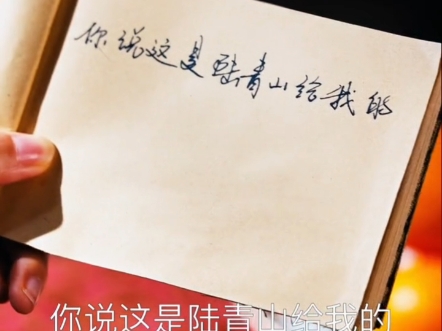 你说这是陆青山给我的
你说这是陆青山给我的